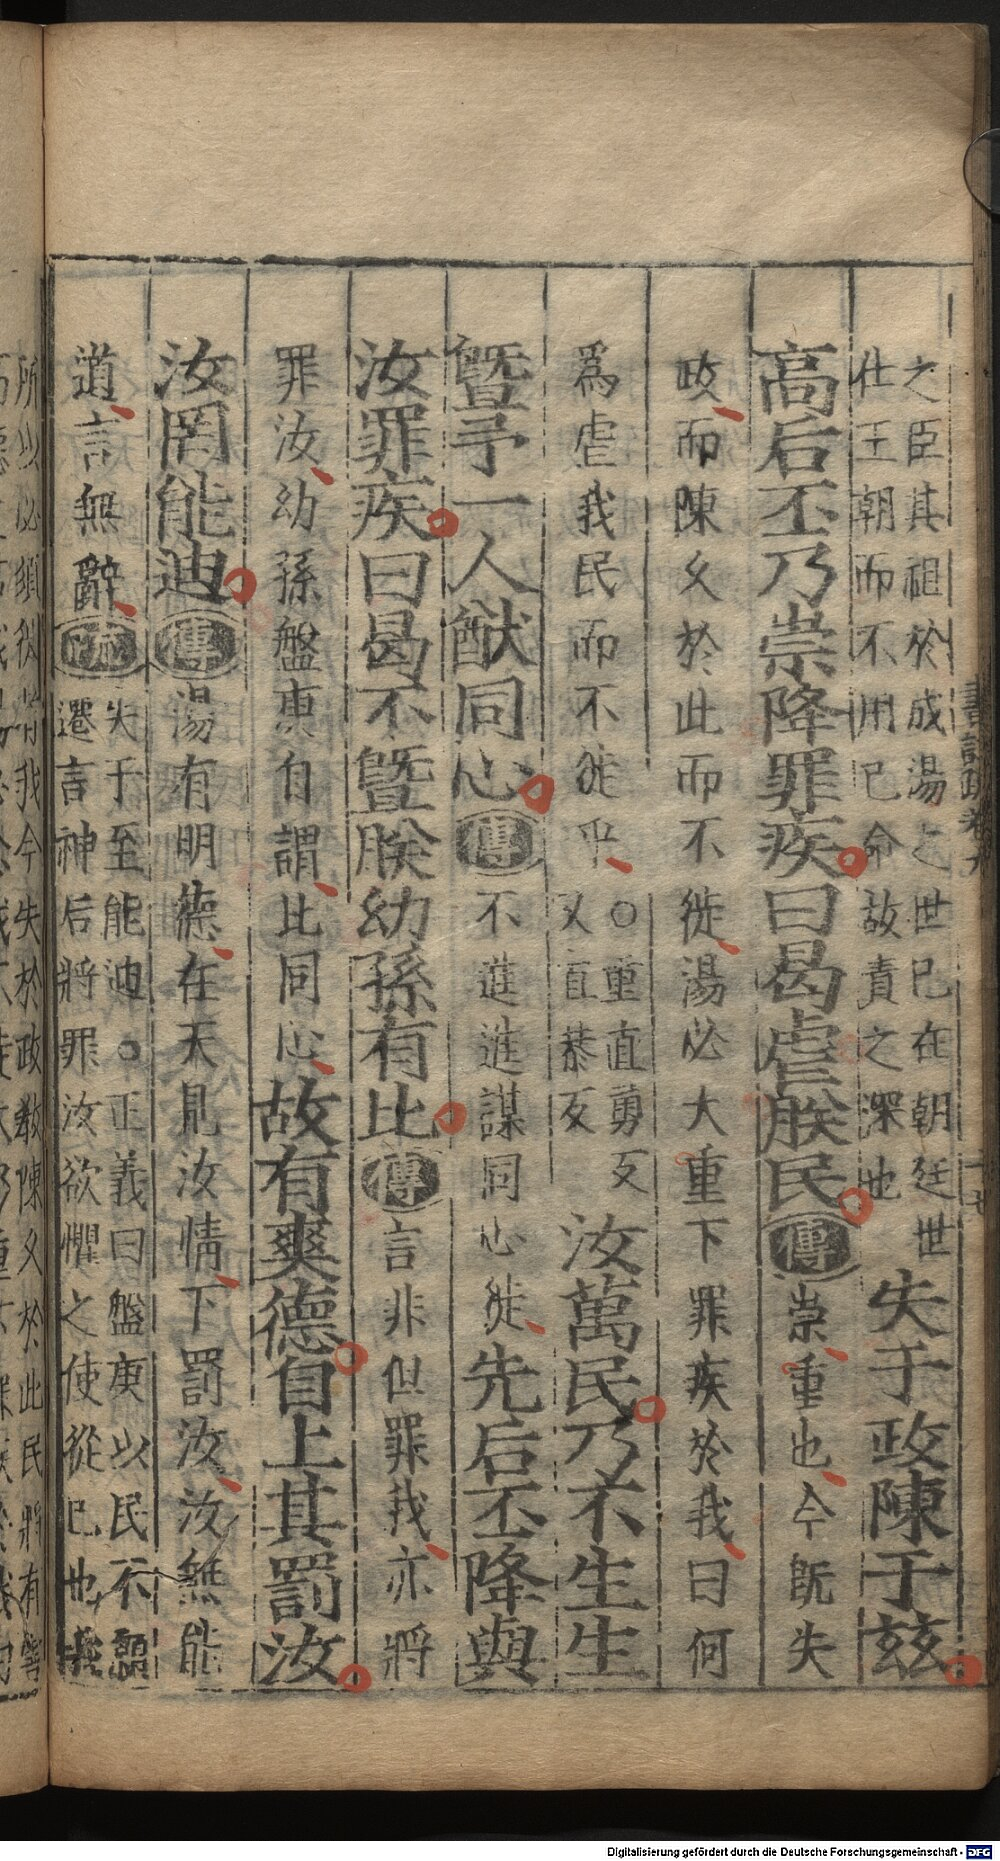 之臣其祖於成湯之世已在朝廷世
仕王朝而不用已命故責之深也
失于政陳于茲
高后丕乃崇降罪疾曰曷虐朕民傳崇重也今既失
政而陳久於此而不徙湯必大重下罪疾於我曰何
爲虐我民而不徙乎
○重直勇反
又直恭反
汝萬民乃不生生
暨予一人猷同心傳不進進謀同心徙先后丕降與
汝罪疾曰曷不暨朕幼孫有比傳言非但罪我亦將
罪汝幼孫盤庚自謂比同心故有爽德自上其罰汝
汝罔能迪傳湯有明德在天見汝情下罰汝汝無能
道言無辭疏
失于至能迪○正義曰盤庚以民不願
遷言神后將罪汝欲懼之使從已也
所以必須
我今失於政教陳久於此民將有害
書註疏卷九
十七
Digitalisierung gefördert durch die Deutsche Forschungsgemeinschaft - DFG